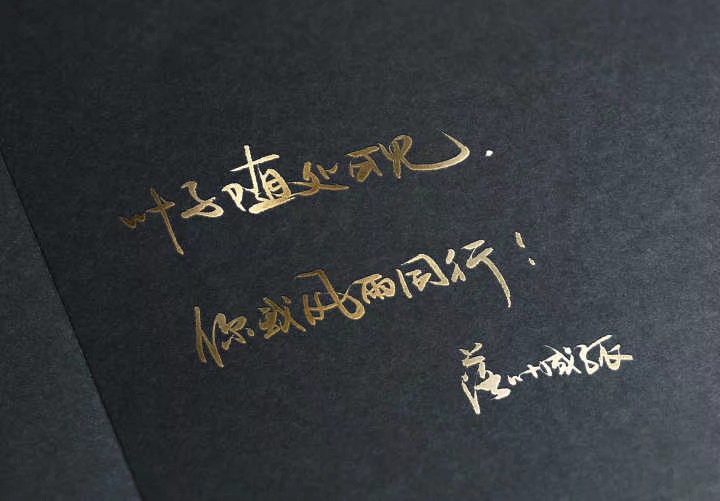 叶子随处可见.
你我风雨同行!
落叶成孤